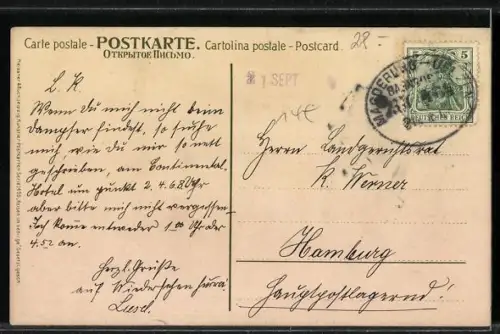 28-
Carte postale - POSTKARTE. Cartolina postale - Postcard.
ОТКРЫТОЕ ПИСЬМО.
1 SEPT
5
MAGDEBURG
BAHNPOST
DEUTSCHES REICH
L. K.
Wenn Du mich nicht beim
Dampfer findest, so suche
mich, wie Du mir so nett
geschrieben, am Continental-
Hotel um Punkt 2. 4. 6. 8 Uhr
aber bitte mich nicht vergessen.
Ich komme entweder 1 00 Uhr oder
4.52 an.
Herzl. Grüße
auf Wiedersehen hurrá
Liesel.
Herrn Landgerichtsrat
K. Werner
Hamburg
Hauptpostlagernd!